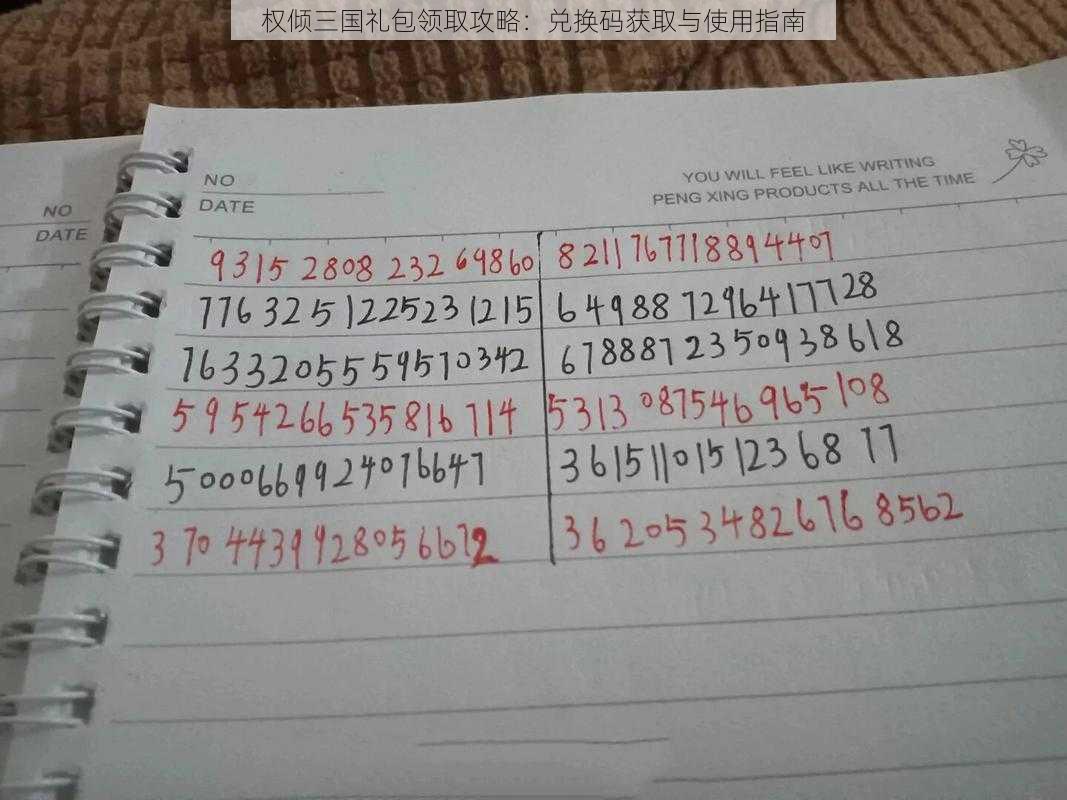 权倾三国礼包领取攻略：兑换码获取与使用指南
NO
DATE
NO
DATE
YOU WILL FEEL LIKE WRITING
PENG XING PRODUCTS ALL THE TIME
9315 2808 232 69860 8211767718894407
776 325 1225231215 6 4988 7296417728
7633205559570342 6788872350938618
5954266535816714 5313087546965108
5000669924076647 3615110151236877
3704439928056672 3620534826768562